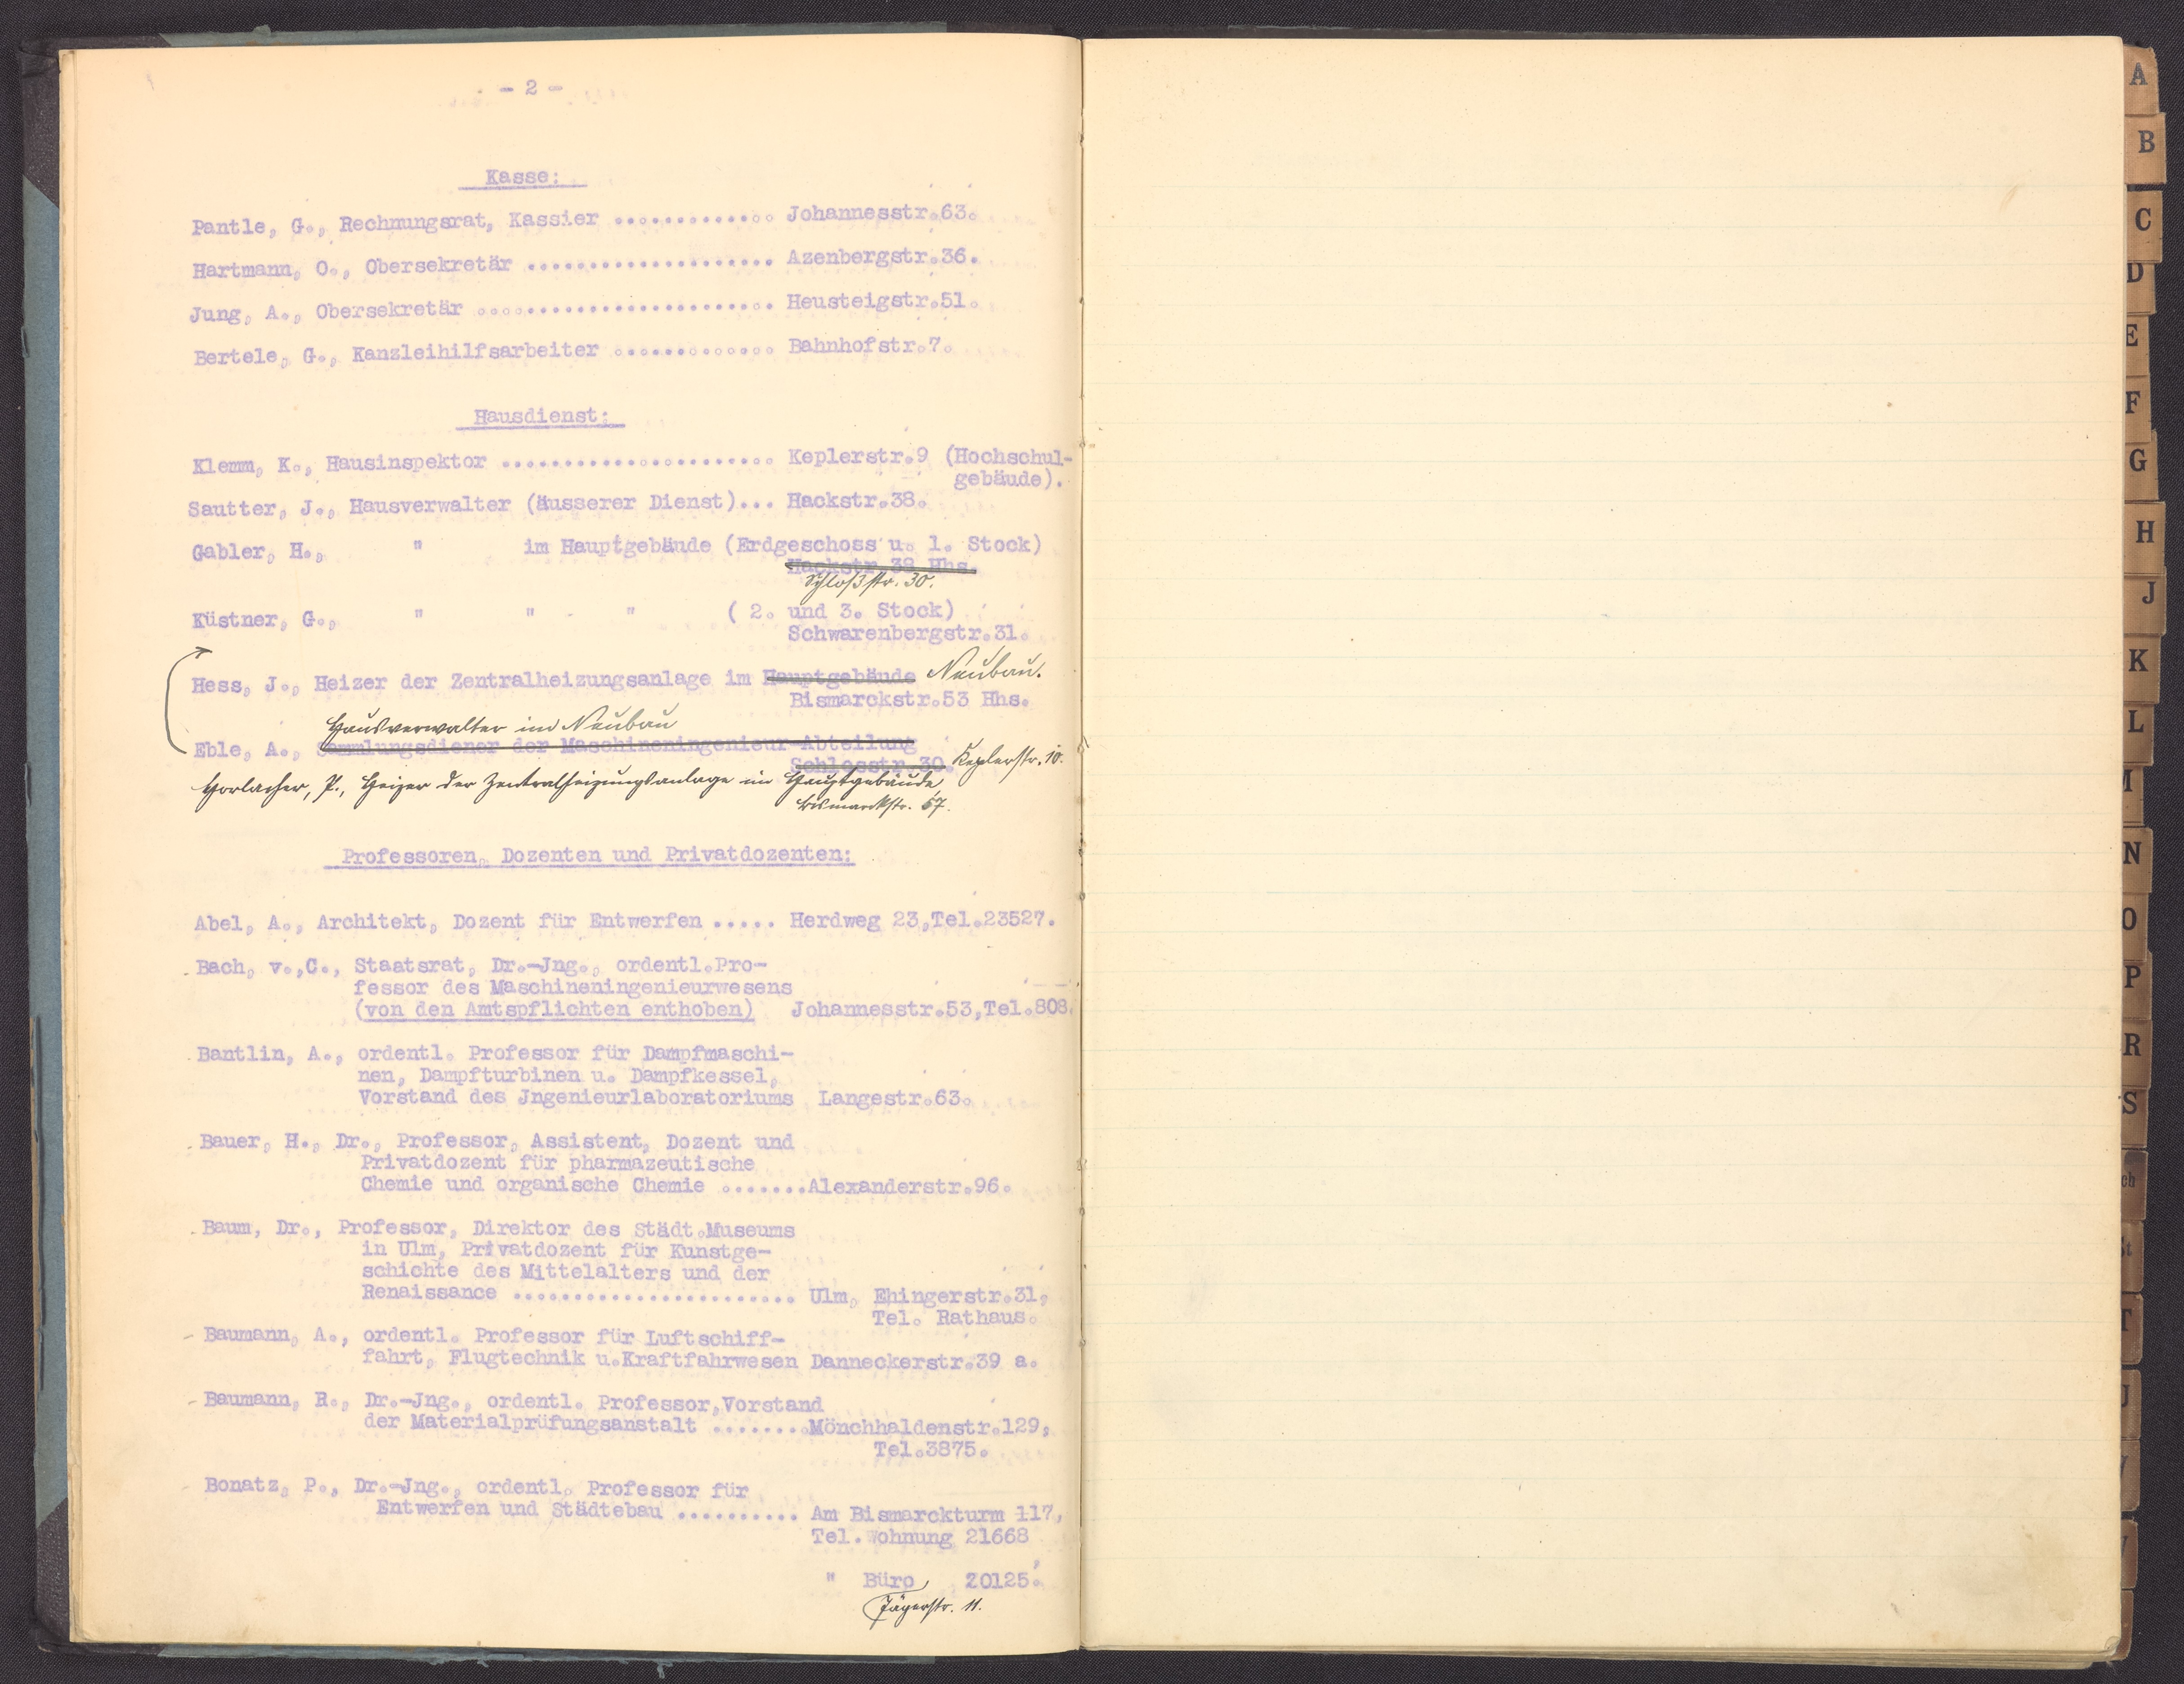 - 2 -
Kasse:
Pantle, G., Rechnungsrat, Kassier ............. Johannesstr.63.
Hartmann, O., Obersekretär .................... Azenbergstr.36.
Jung, A., Obersekretär ........................ Heusteigstr.51.
Bertele, G., Kanzleihilfsarbeiter ............. Bahnhofstr.7.
Hausdienst:
Klemm, K., Hausinspektor ...................... Keplerstr.9 (Hochschul-
gebäude).
Sautter, J., Hausverwalter (äusserer Dienst)... Hackstr.38.
Gabler, H., " im Hauptgebäude (Erdgeschoss u. 1. Stock)
Hackstr.38 Hhs.
Schloßstr. 30.
Küstner, G., " " - " ( 2. und 3. Stock)
Schwarenbergstr.31.
Hess, J., Heizer der Zentralheizungsanlage im Hauptgebäude Neubau.
Bismarckstr.53 Hhs.
Hausverwalter im Neubau
Eble, A., Sammlungsdiener der Maschineningenieur-Abteilung
Schlosstr.30. Keplerstr. 10.
Horlacher, P., Heizer der Zentralheizungsanlage im Hauptgebäude,
Bismarckstr. 57.
Professoren, Dozenten und Privatdozenten:
Abel, A., Architekt, Dozent für Entwerfen ..... Herdweg 23,Tel.23527.
Bach, v.,C., Staatsrat, Dr.-Jng., ordentl.Pro-
fessor des Maschineningenieurwesens
(von den Amtspflichten enthoben) Johannesstr.53,Tel.808.
Bantlin, A., ordentl. Professor für Dampfmaschi-
nen, Dampfturbinen u. Dampfkessel,
Vorstand des Jngenieurlaboratoriums Langestr.63.
Bauer, H., Dr., Professor, Assistent, Dozent und
Privatdozent für pharmazeutische
Chemie und organische Chemie .......Alexanderstr.96.
Baum, Dr., Professor, Direktor des Städt.Museums
in Ulm, Privatdozent für Kunstge-
schichte des Mittelalters und der
Renaissance ....................... Ulm, Ehingerstr.31,
Tel. Rathaus.
Baumann, A., ordentl. Professor für Luftschiff-
fahrt, Flugtechnik u.Kraftfahrwesen Danneckerstr.39 a.
Baumann, R., Dr.-Jng., ordentl. Professor,Vorstand
der Materialprüfungsanstalt ........Mönchhaldenstr.129,
Tel.3875.
Bonatz, P., Dr.-Jng., ordentl. Professor für
Entwerfen und Städtebau .......... Am Bismarckturm 117,
Tel.Wohnung 21668
" Büro 20125.
Jägerstr. 11.
A
B
C
D
E
F
G
H
J
K
L
M
N
O
P
R
S
Sch
St
T
U